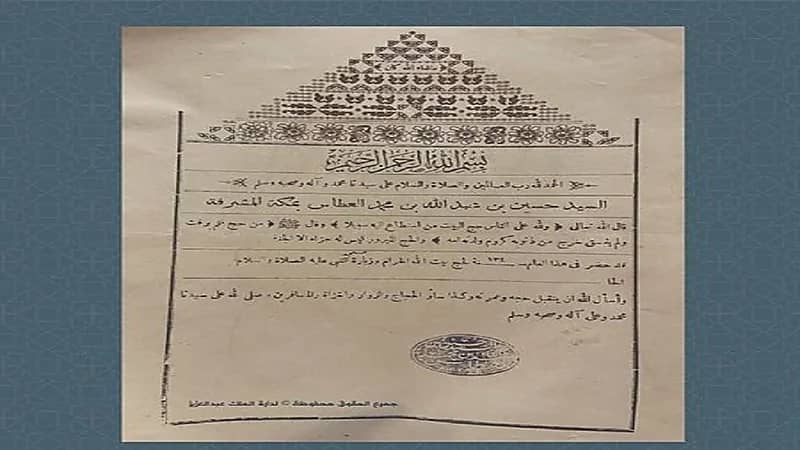 ماشاء الله كان
بسم الله الرحمن الرحيم
الحمد لله رب العالمين والصلاة والسلام على سيدنا محمد وآله وصحبه وسلم
السيد حسين بن عبد الله بن محمد العطاس بمكة المشرفة
قال الله تعالى ﴿ ولله على الناس حج البيت من استطاع اليه سبيلا ﴾ وقال ﷺ ﴿ من حج فلم يرفث
ولم يفسق خرج من ذنوبه كيوم ولدته امه ﴾ والحج المبرور ليس له جزاء الا الجنة
قد حضر في هذا العام سنة لحج بيت الله الحرام وزيارة النبي عليه الصلاة والسلام
واسأل الله ان يتقبل حجه وعمرته وكذا سائر الحجاج والزوار والغزاة والمسافرين وصلى الله على سيدنا
محمد وعلى آله وصحبه وسلم
جميع الحقوق محفوظة © لدارة الملك عبدالعزيز